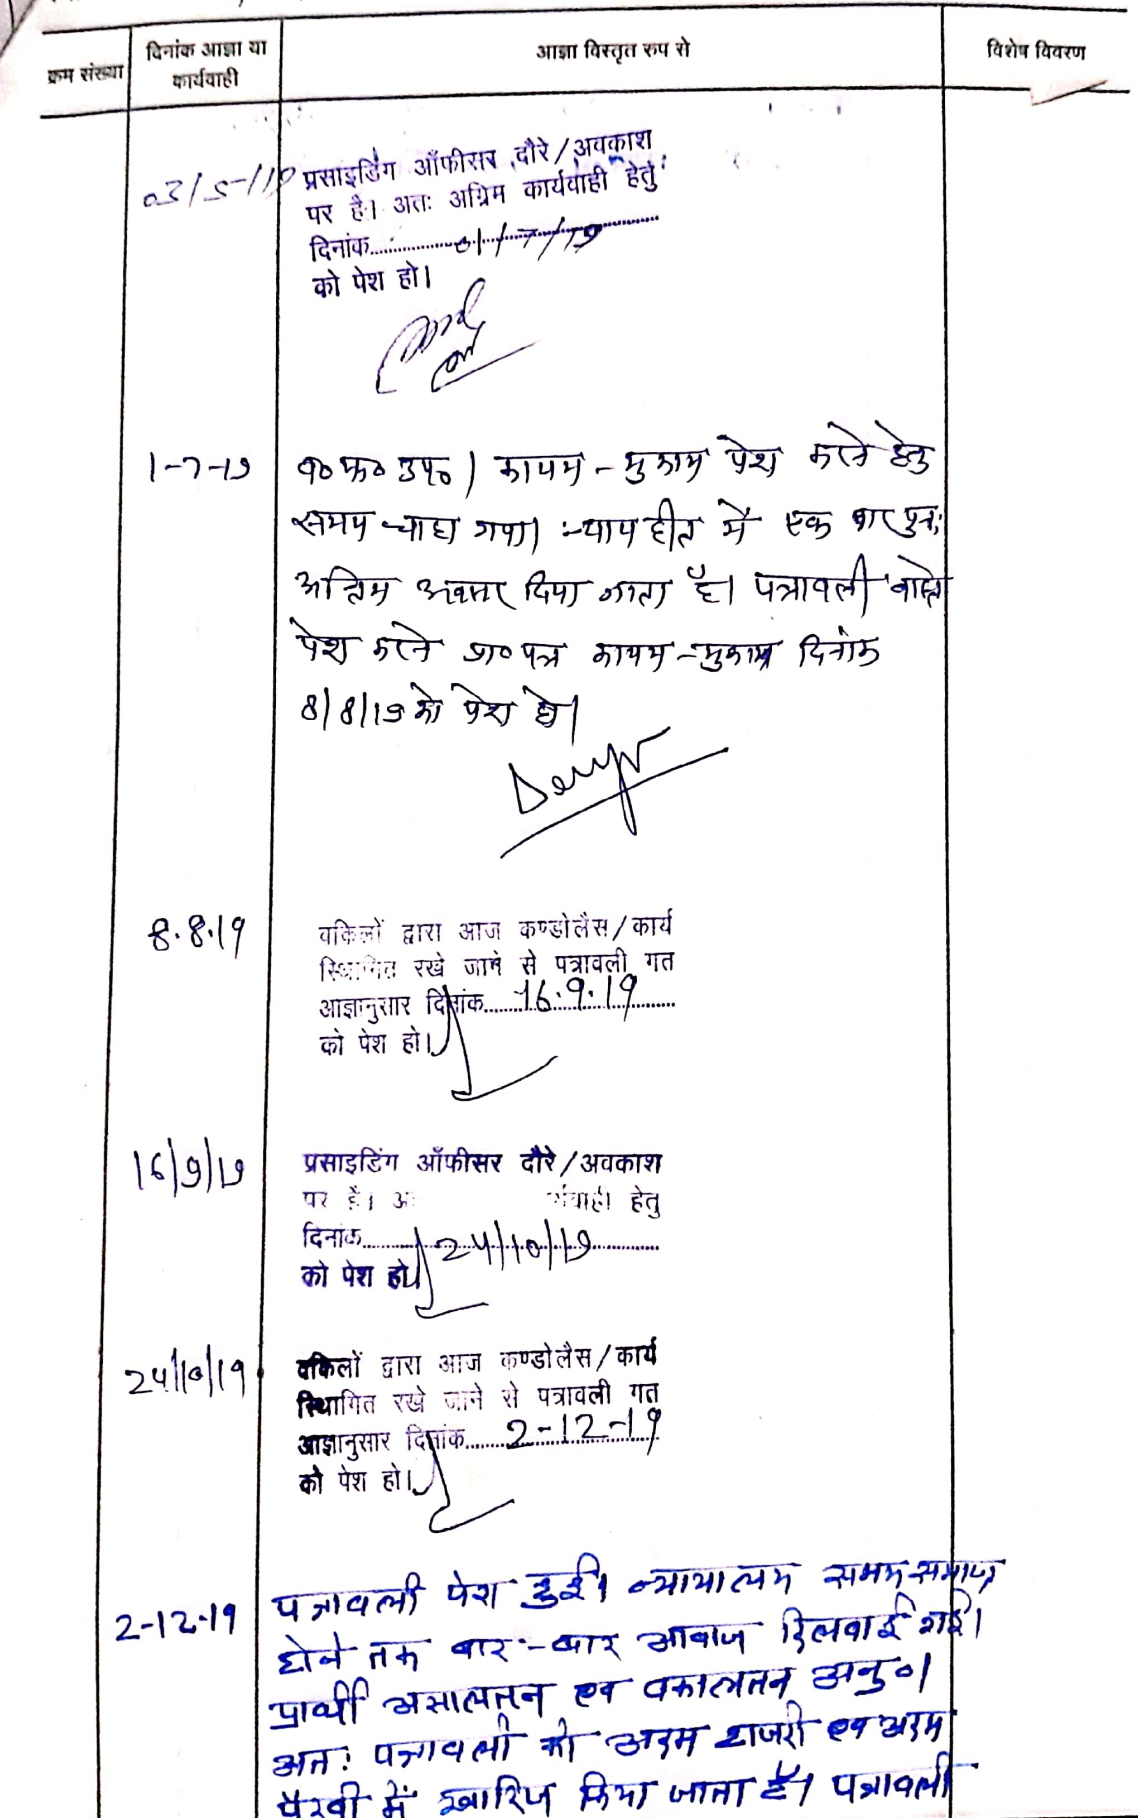 क्रम संख्या
दिनांक आज्ञा या
कार्यवाही
आज्ञा विस्तृत रुप से
विशेष विवरण
03/5/19
प्रसाइडिंग ऑफीसर दौरे/अवकाश
पर है। अतः अग्रिम कार्यवाही हेतु
दिनांक 01/7/19
को पेश हो।
1-7-19
व० फ० उप०। कायम-मुकाम पेश करने हेतु
समय चाहा गया। न्यायहीत में एक बार पुनः
अन्तिम अवसर दिया जाता है। पत्रावली वास्ते
पेश करने प्रा० पत्र कायम-मुकाम दिनांक
8/8/19 को पेश हो।
8.8.19
वकिलों द्वारा आज कण्डोलैस/कार्य
स्थिागित रखे जाने से पत्रावली गत
आज्ञानुसार दिनांक 16.9.19
को पेश हो।
16/9/19
प्रसाइडिंग ऑफीसर दौरे/अवकाश
पर है। अ र्यवाही हेतु
दिनांक 24/10/19
को पेश हो।
24/10/19
वकिलों द्वारा आज कण्डोलैस/कार्य
स्थिागित रखे जाने से पत्रावली गत
आज्ञानुसार दिनांक 2-12-19
को पेश हो।
2-12-19
पत्रावली पेश हुई। न्यायालय समय समाप्त
होने तक बार-बार आवाज दिलवाई गई।
प्रार्थी असालतन एव वकालतन अनु०।
अतः पत्रावली को अदम हाजरी एव अदम
पैरवी में खारिज किया जाता है। पत्रावली